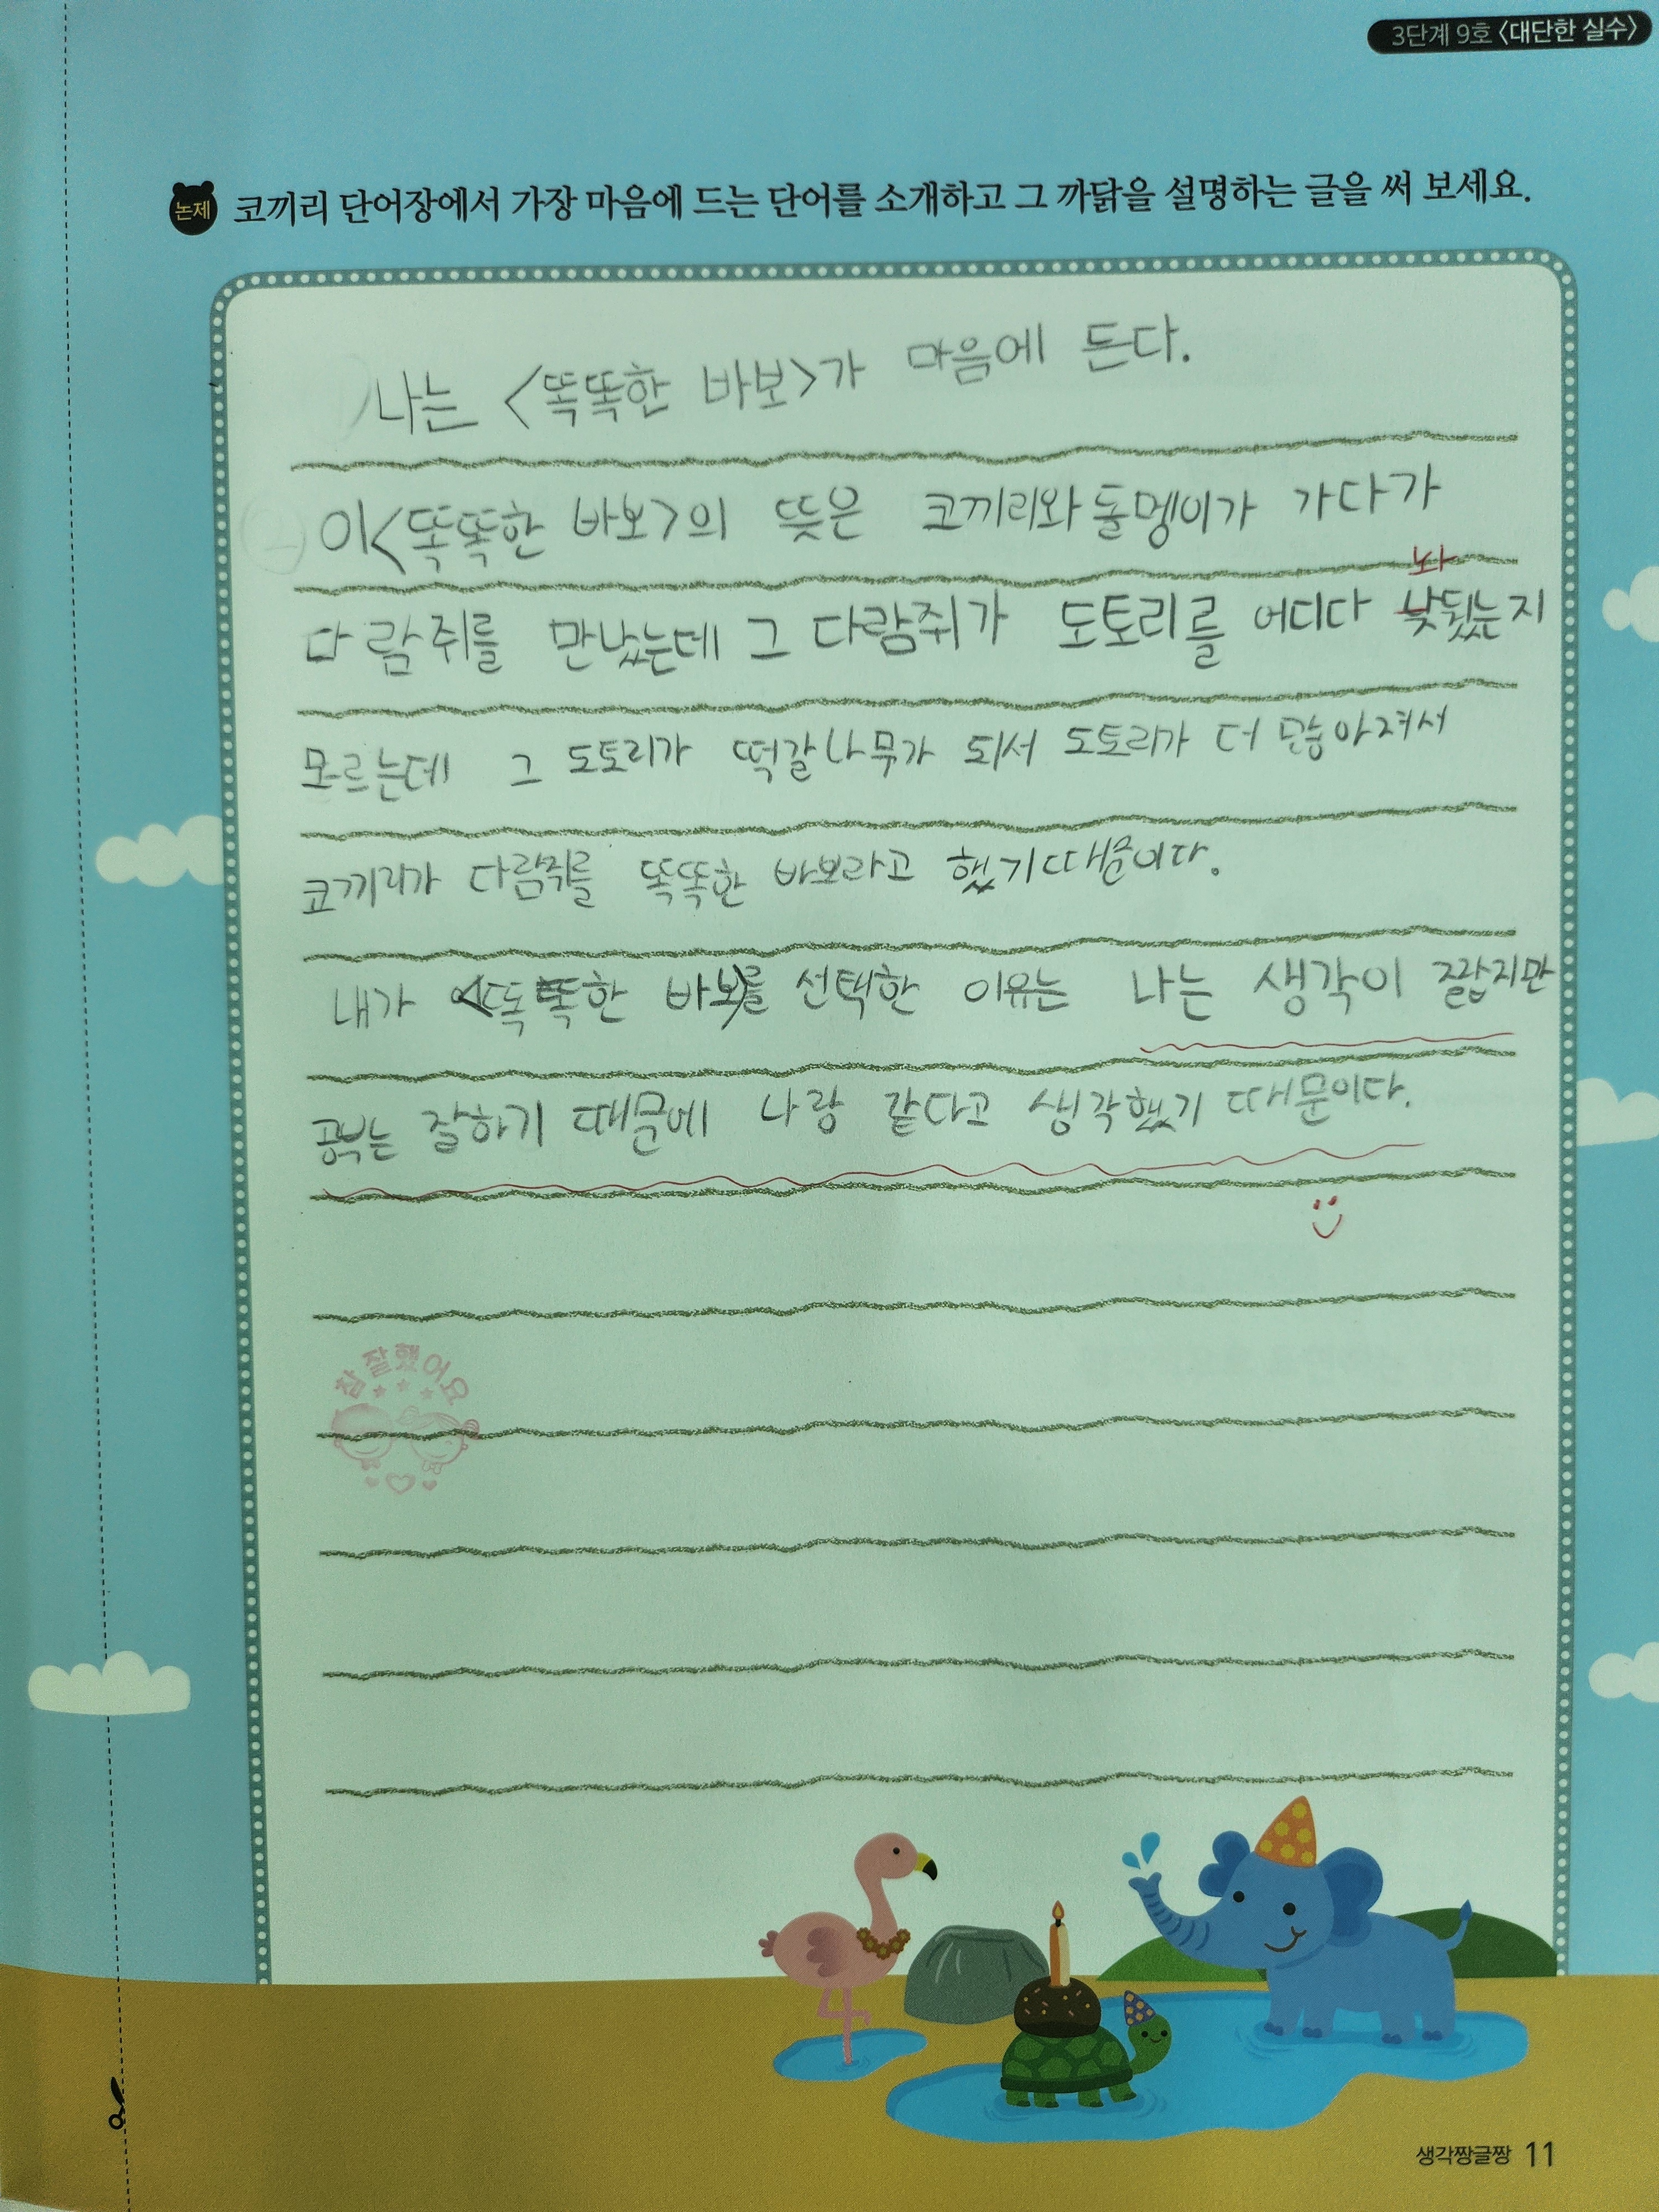 3단계 9호 〈대단한 실수〉
논제 코끼리 단어장에서 가장 마음에 드는 단어를 소개하고 그 까닭을 설명하는 글을 써 보세요.
나는 <똑똑한 바보>가 마음에 든다.
이<똑똑한 바보>의 뜻은 코끼리와 돌멩이가 가다가
놔
다람쥐를 만났는데 그 다람쥐가 도토리를 어디다 낮뒀는지
모르는데 그 도토리가 떡갈나무가 되서 도토리가 더 많아져서
코끼리가 다람쥐를 똑똑한 바보라고 했기때문이다.
내가 <똑똑한 바보>를 선택한 이유는 나는 생각이 짧지만
공부는 잘하기 때문에 나랑 같다고 생각했기 때문이다.
참 잘했어요
생각짱글짱 11